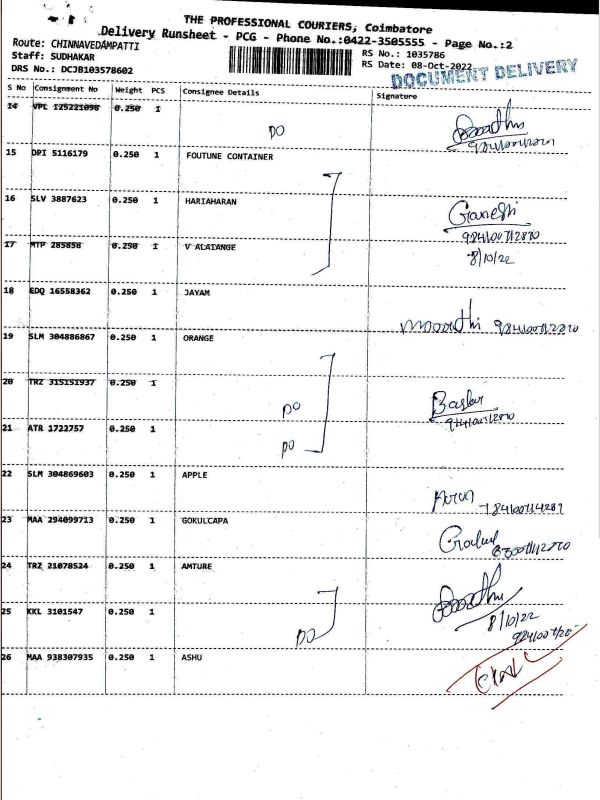 THE PROFESSIONAL COURIERS, Coimbatore
Delivery Runsheet - PCG - Phone No.:0422-3505555 - Page No.:2
Route: CHINNAVEDAMPATTI
RS No.: 1035786
Staff: SUDHAKAR
RS Date: 08-Oct-2022
DRS No.: DCJB103578602
DOCUMENT DELIVERY
S No Consignment No Weight PCS Consignee Details Signature
14 VPL 125221098 0.250 1
DO
15 DPI 5116179 0.250 1 FOUTUNE CONTAINER
16 SLV 3887623 0.250 1 HARIAHARAN
Ganesh
17 MTP 285858 0.250 1 V ALAIANGE
8/10/22
18 EDQ 16558362 0.250 1 JAYAM
Moorthi
19 SLM 304886867 0.250 1 ORANGE
20 TRZ 315151937 0.250 1
DO
Baskar
21 ATR 1722757 0.250 1
DO
22 SLM 304869603 0.250 1 APPLE
Arun
23 MAA 294099713 0.250 1 GOKULCAPA
Gokul
24 TRZ 21078524 0.250 1 AMTURE
25 KKL 3101547 0.250 1
8/10/22
DO
26 MAA 938307935 0.250 1 ASHU